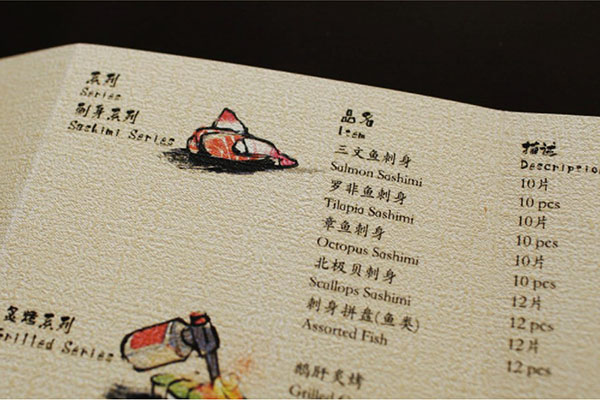 系列
Series
刺身系列
Sashimi Series
品名
Item
三文鱼刺身
Salmon Sashimi
罗非鱼刺身
Tilapia Sashimi
章鱼刺身
Octopus Sashimi
北极贝刺身
Scallops Sashimi
刺身拼盘(鱼类)
Assorted Fish
鹅肝炙烤
Grilled
描述
Description
10片
10 pcs
10片
10 pcs
10片
10 pcs
12片
12 pcs
12片
12 pcs
炙烤系列
Grilled Series